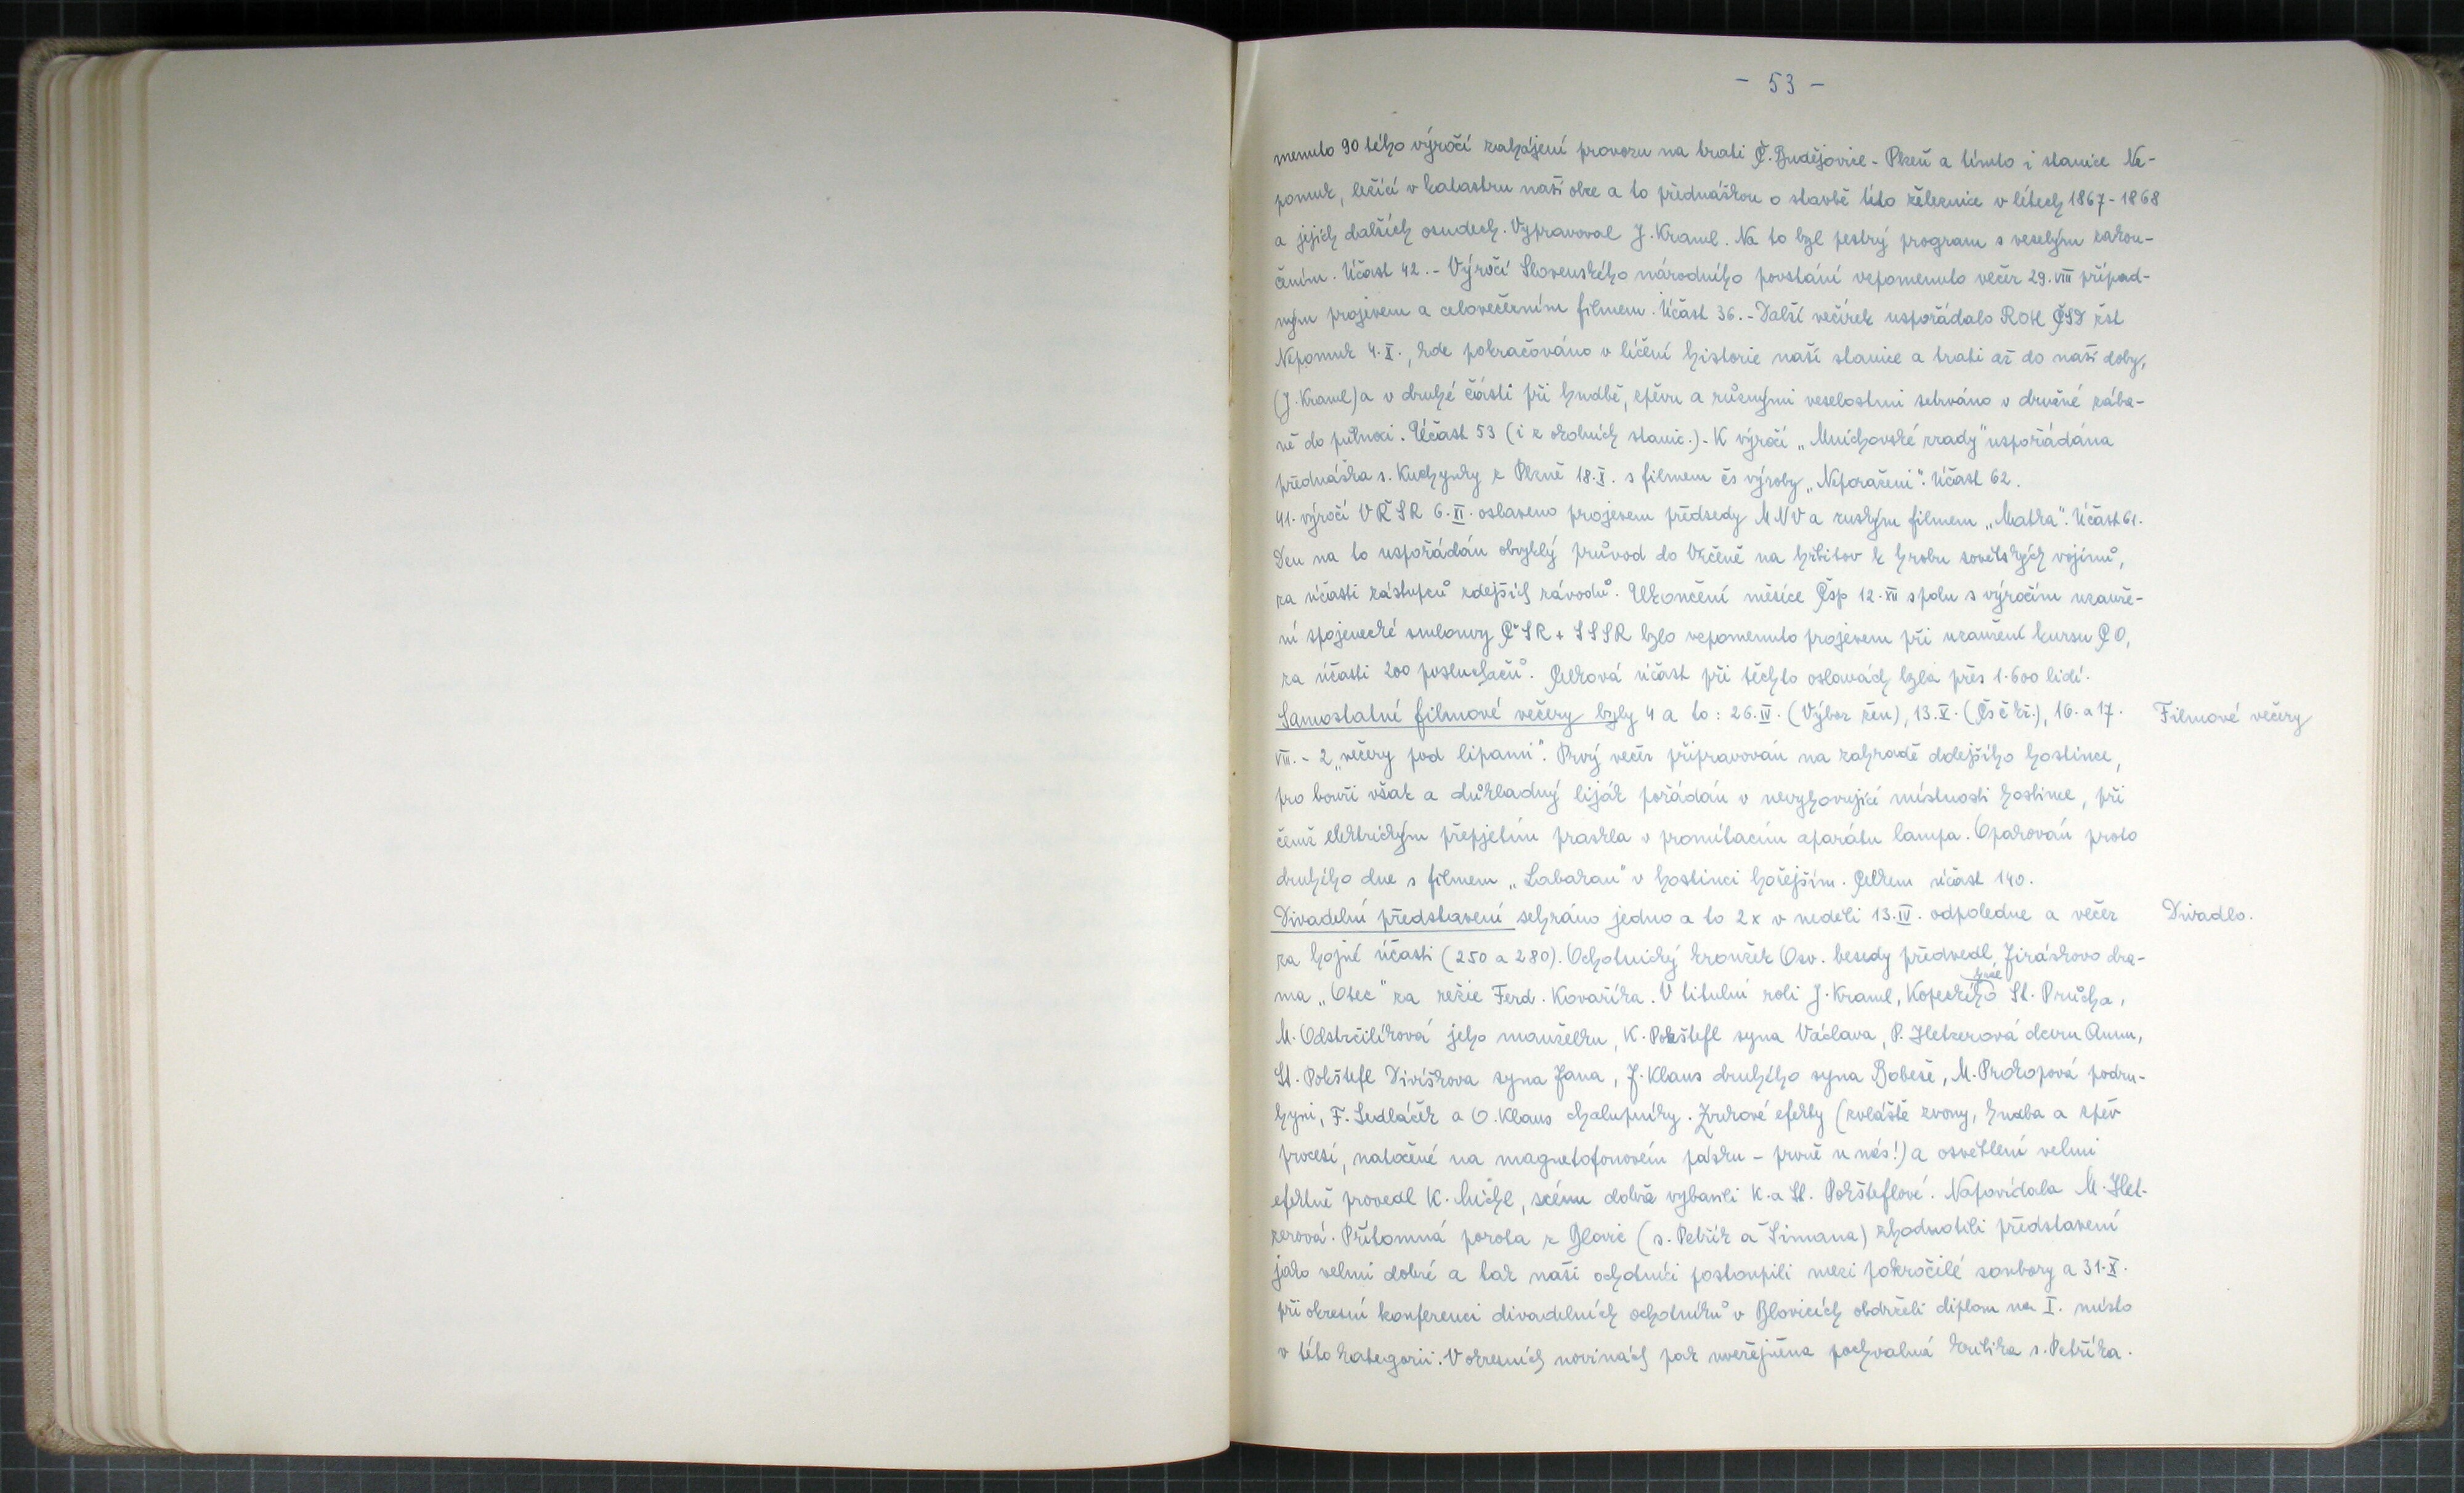 - 53 -
menulo 90 tého výročí zahájení provozu na trati Č. Budějovice - Plzeň a tímto i stanice Ne-
pomuk, ležící v katastru naší obce a to přednáškou o stavbě této železnice v létech 1867-1868
a jejích dalších osudech. Vypravoval J. Kraml. Na to byl pestrý program s veselým zakon-
čením. Účast 42. - Výročí Slovenského národního povstání vzpomenuto večer 29. VIII případ-
ným projevem a celovečerním filmem. Účast 36. - Další večírek uspořádalo ROH ČSD žst
Nepomuk 4. X., kde pokračováno v líčení historie naší stanice a trati až do naší doby,
(J. Kraml) a v druhé části při hudbě, zpěvu a různými veselostmi setrváno v družné zába-
vě do půlnoci. Účast 53 (i z okolních stanic.) - K výročí „Mnichovské zrady" uspořádána
přednáška s. Kuchynky z Plzně 18. X. s filmem čs výroby „Neporaženi". Účast 62.
41. výročí VŘSR 6. XI. oslaveno projevem předsedy MNV a ruským filmem „Matka". Účast 61.
Den na to uspořádán obvyklý průvod do Vrčeně na hřbitov k hrobu sovětských vojínů,
za účasti zástupců zdejších závodů. Ukončení měsíce Čsp 12. XII spolu s výročím uzavře-
ní spojenecké smlouvy ČSR + SSSR bylo vzpomenuto projevem při uzavření kursu CO,
za účasti 200 posluchačů. Celková účast při těchto oslavách byla přes 1.600 lidí.
Samostatné filmové večery byly 4 a to: 26. IV. (Výbor žen), 13. V. (Čs č kř.), 16. a 17.
Filmové večery
VIII. - 2 „večery pod lipami". Prvý večer připravován na zahradě dolejšího hostince,
pro bouři však a důkladný liják pořádán v nevyhovující místnosti hostince, při
čemž elektrickým přepjetím praskla v promítacím aparátu lampa. Opakován proto
druhého dne s filmem „Labakan" v hostinci hořejším. Celkem účast 140.
Divadelní představení sehráno jedno a to 2x v neděli 13. IV. odpoledne a večer
Divadlo.
za hojné účasti (250 a 280). Ochotnický kroužek Osv. besedy předvedl Jiráskovo dra-
ma „Otec" za režie Ferd. Kovaříka. V titulní roli J. Kraml, Kopeckého hrál St. Průcha,
M. Odstrčilíková jeho manželku, K. Pokštefl syna Václava, P. Hetzerová dceru Annu,
St. Pokštefl Divíškova syna Jana, J. Klaus druhého syna Bobeše, M. Prokopová podru-
hyni, F. Sedláček a O. Klaus chalupníky. Zvukové efekty (zvláště zvony, hudba a zpěv
procesí, natočené na magnetofonovém pásku - prvně u nás!) a osvětlení velmi
efektně provedl K. Míchl, scénu dobře vybavili K. a St. Pokšteflové. Napovídala M. Het-
zerová. Přítomná porota z Blovic (s. Petřík a Šimana) zhodnotili představení
jako velmi dobré a tak naši ochotníci postoupili mezi pokročilé soubory a 31. X.
při okresní konferenci divadelních ochotníků v Blovicích obdrželi diplom na I. místo
v této kategorii. V okresních novinách pak uveřejněna pochvalná kritika s. Petříka.